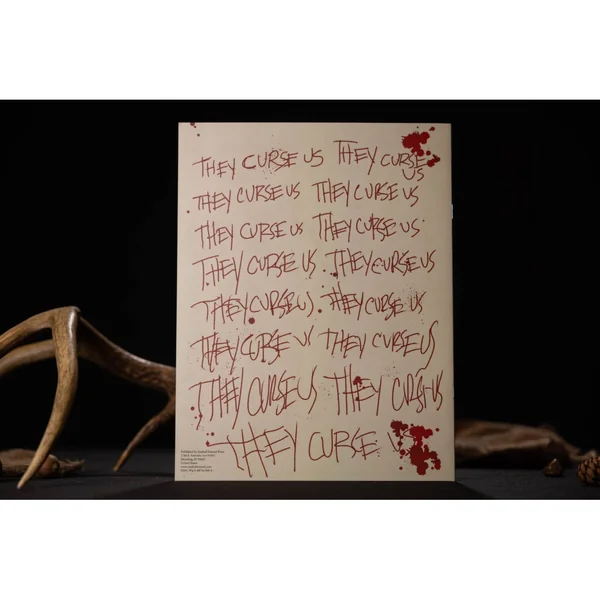 THEY CURSE US THEY CURSE US
THEY CURSE US THEY CURSE US
THEY CURSE US THEY CURSE US
THEY CURSE US THEY CURSE US
THEY CURSE US THEY CURSE US
THEY CURSE US THEY CURSE US
THEY CURSE US THEY CURSE US
THEY CURSE US